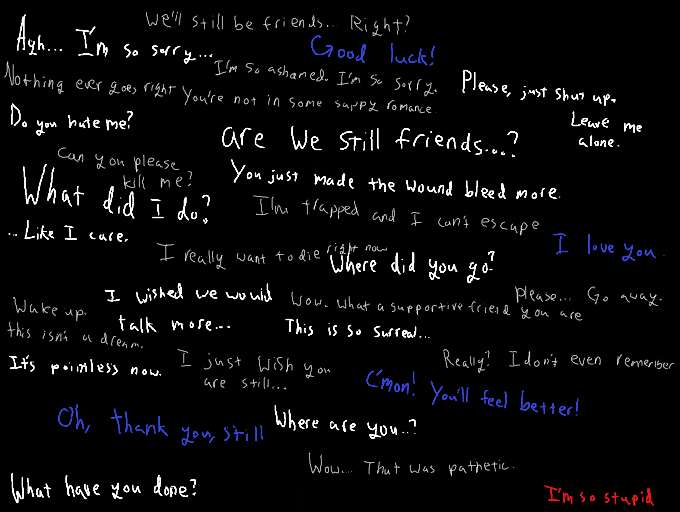 We'll still be friends... Right?
Agh... I'm so sorry...
Good luck!
I'm so ashamed. I'm so sorry.
Nothing ever goes right
You're not in some sappy romance.
Please, just shut up.
Leave me
alone.
Do you hate me?
are we still friends...?
Can you please
kill me?
You just made the wound bleed more.
What did I do?
I'm trapped and I can't escape
... Like I care.
I love you.
I really want to die right now
Where did you go?
please... Go away.
I wished we would
talk more...
Wow. What a supportive friend you are
Wake up.
this isn't a dream.
This is so surreal...
It's pointless now.
I just wish you
are still...
Really? I don't even remember
C'mon! You'll feel better!
Oh, thank you, still
Where are you..?
Wow.... That was pathetic.
What have you done?
I'm so stupid